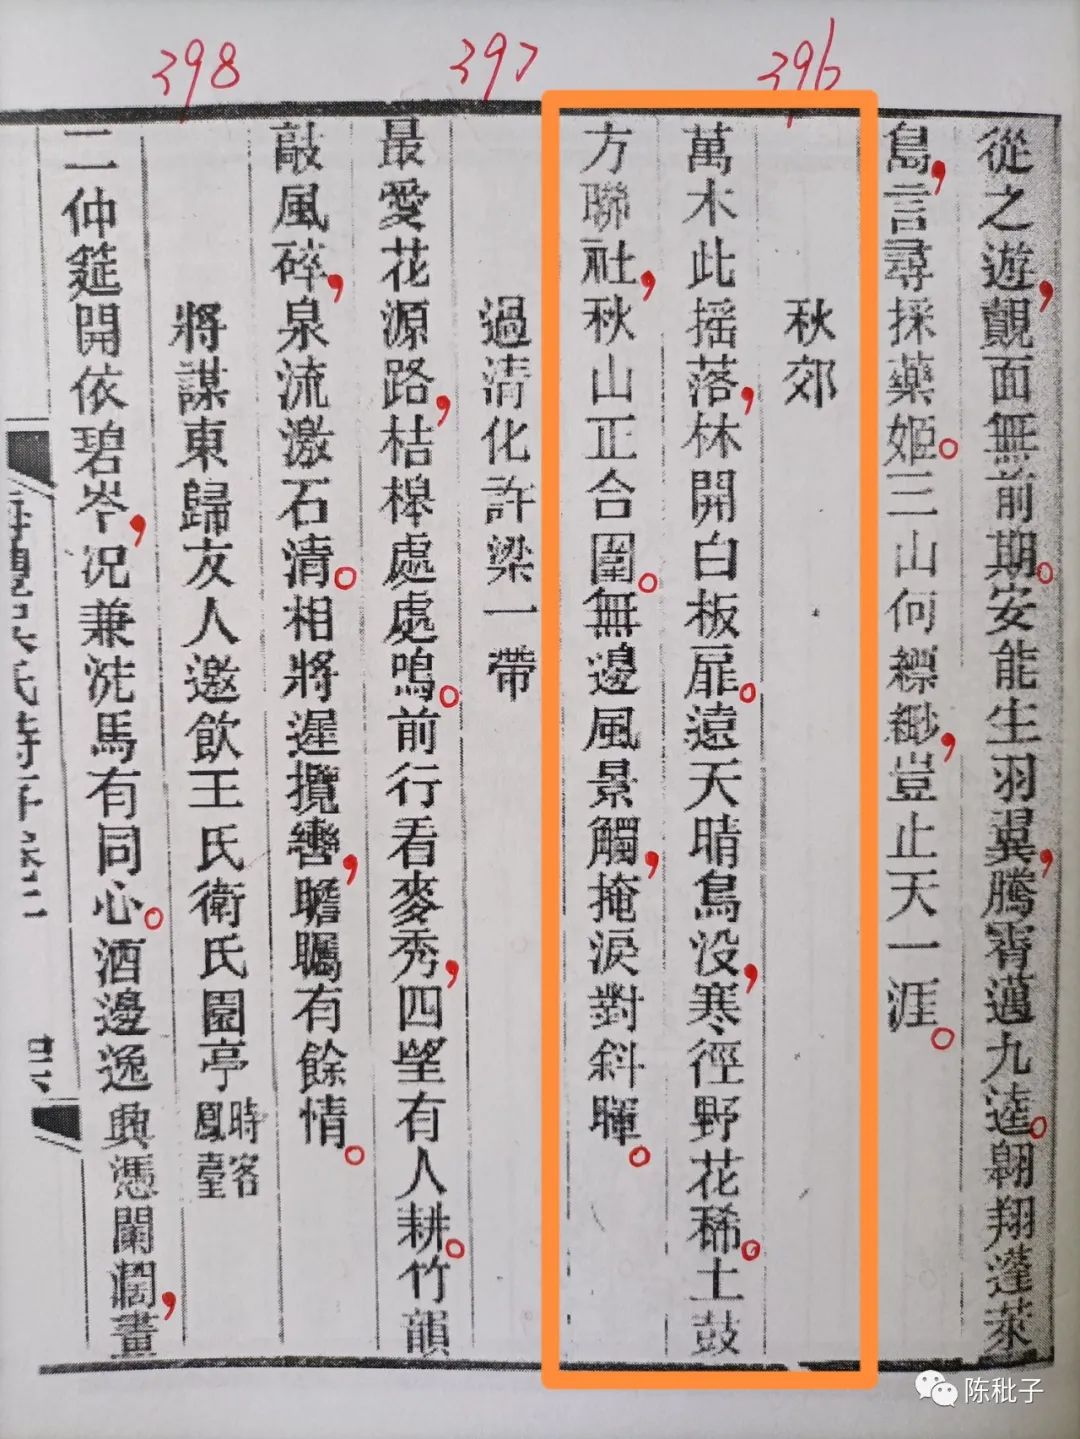 398
397
396
從之遊，覿面無前期。安能生羽翼，騰霄邁九逵。翱翔蓬萊
島，言尋採藥姬。三山何縹緲，豈止天一涯。
秋郊
萬木此摇落，林開白板扉。遠天晴鳥没，寒徑野花稀。土鼓
方聯社，秋山正合圍。無邊風景觸，掩淚對斜暉。
過清化許梁一帶
最愛花源路，桔槔處處鳴。前行看麥秀，四望有人耕。竹韻
敲風碎，泉流激石清。相將遲攬轡，瞻矚有餘情。
將謀東歸友人邀飲王氏衛氏園亭時客鳳臺
二仲筵開依碧岑，況兼洗馬有同心。酒邊逸興憑闌闊，畫
陈秕子